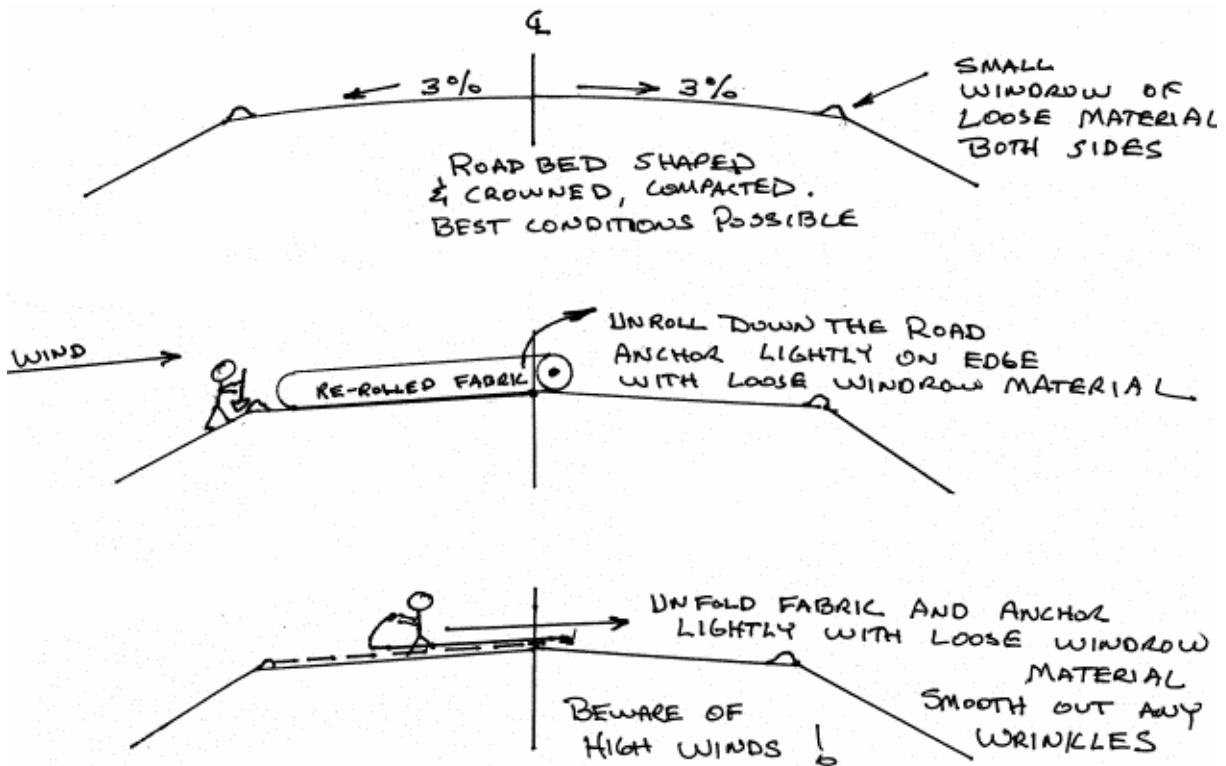 ℄
3% 3%
SMALL
WINDROW OF
LOOSE MATERIAL
BOTH SIDES
ROADBED SHAPED
& CROWNED, COMPACTED.
BEST CONDITIONS POSSIBLE
WIND
RE-ROLLED FABRIC
UNROLL DOWN THE ROAD
ANCHOR LIGHTLY ON EDGE
WITH LOOSE WINDROW MATERIAL
UNFOLD FABRIC AND ANCHOR
LIGHTLY WITH LOOSE WINDROW
MATERIAL
SMOOTH OUT ANY
WRINKLES
BEWARE OF
HIGH WINDS !